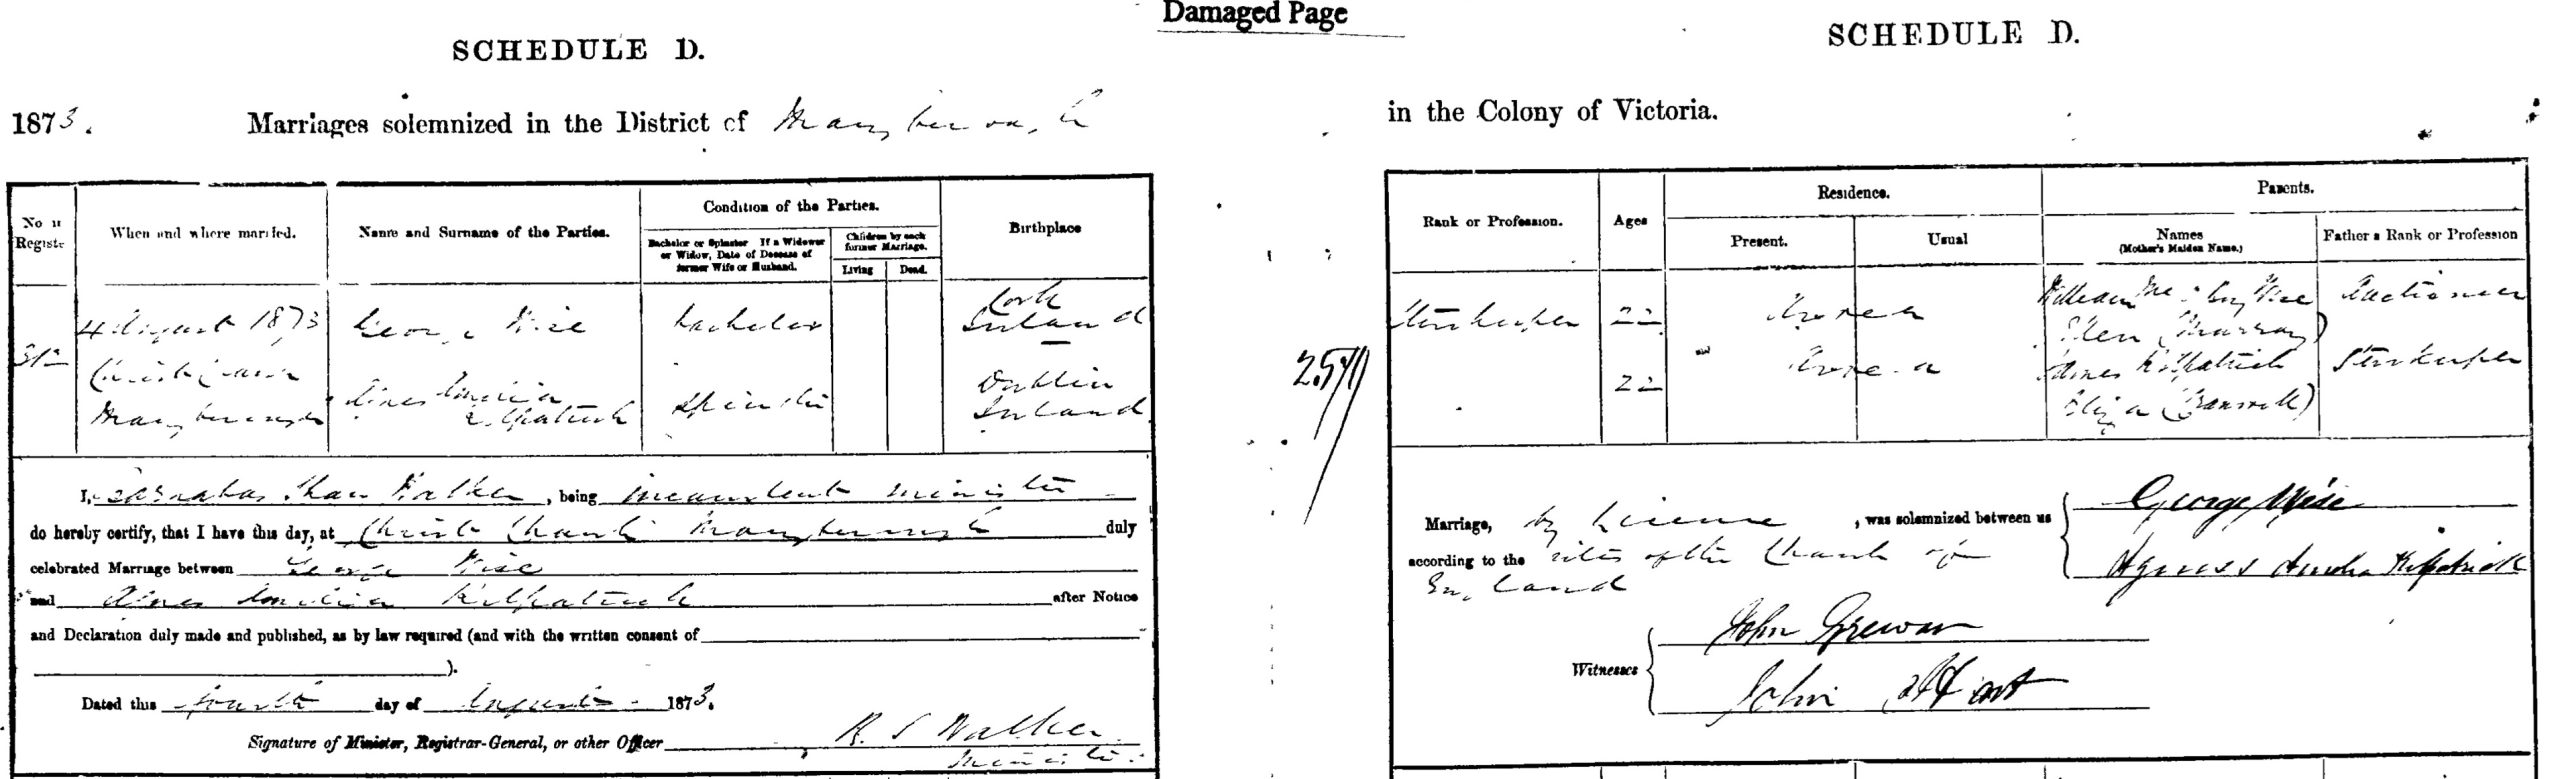 Damaged Page
SCHEDULE D.
1873. Marriages solemnized in the District of Maryborough
No in Register
When and where married.
Name and Surname of the Parties.
Condition of the Parties.
Bachelor or Spinster If a Widower or Widow, Date of Decease of former Wife or Husband.
Children by each former Marriage.
Living Dead.
Birthplace
4 August 1873
Christ Church
Maryborough
George Wise
Bachelor
Cork
Ireland
Agnes Amelia
Kilpatrick
Spinster
Dublin
Ireland
I, Barnabas Shaw Walker, being incumbent minister
do hereby certify, that I have this day, at Christ Church Maryborough duly
celebrated Marriage between George Wise
and Agnes Amelia Kilpatrick after Notice
and Declaration duly made and published, as by law required (and with the written consent of
).
Dated this fourth day of August 1873.
Signature of Minister, Registrar-General, or other Officer B. S Walker
Minister
SCHEDULE D.
in the Colony of Victoria.
Rank or Profession.
Ages
Residence.
Present. Usual
Parents.
Names
(Mother's Maiden Name.)
Father's Rank or Profession
Storekeeper
22
William Wise
Ellen (Murray)
Auctioneer
22
James Kilpatrick
Eliza
Storekeeper
Marriage, by License, was solemnized between us
George Wise
according to the rites of the Church of
England
Agness Amelia Kilpatrick
Witnesses
John Grewar
John